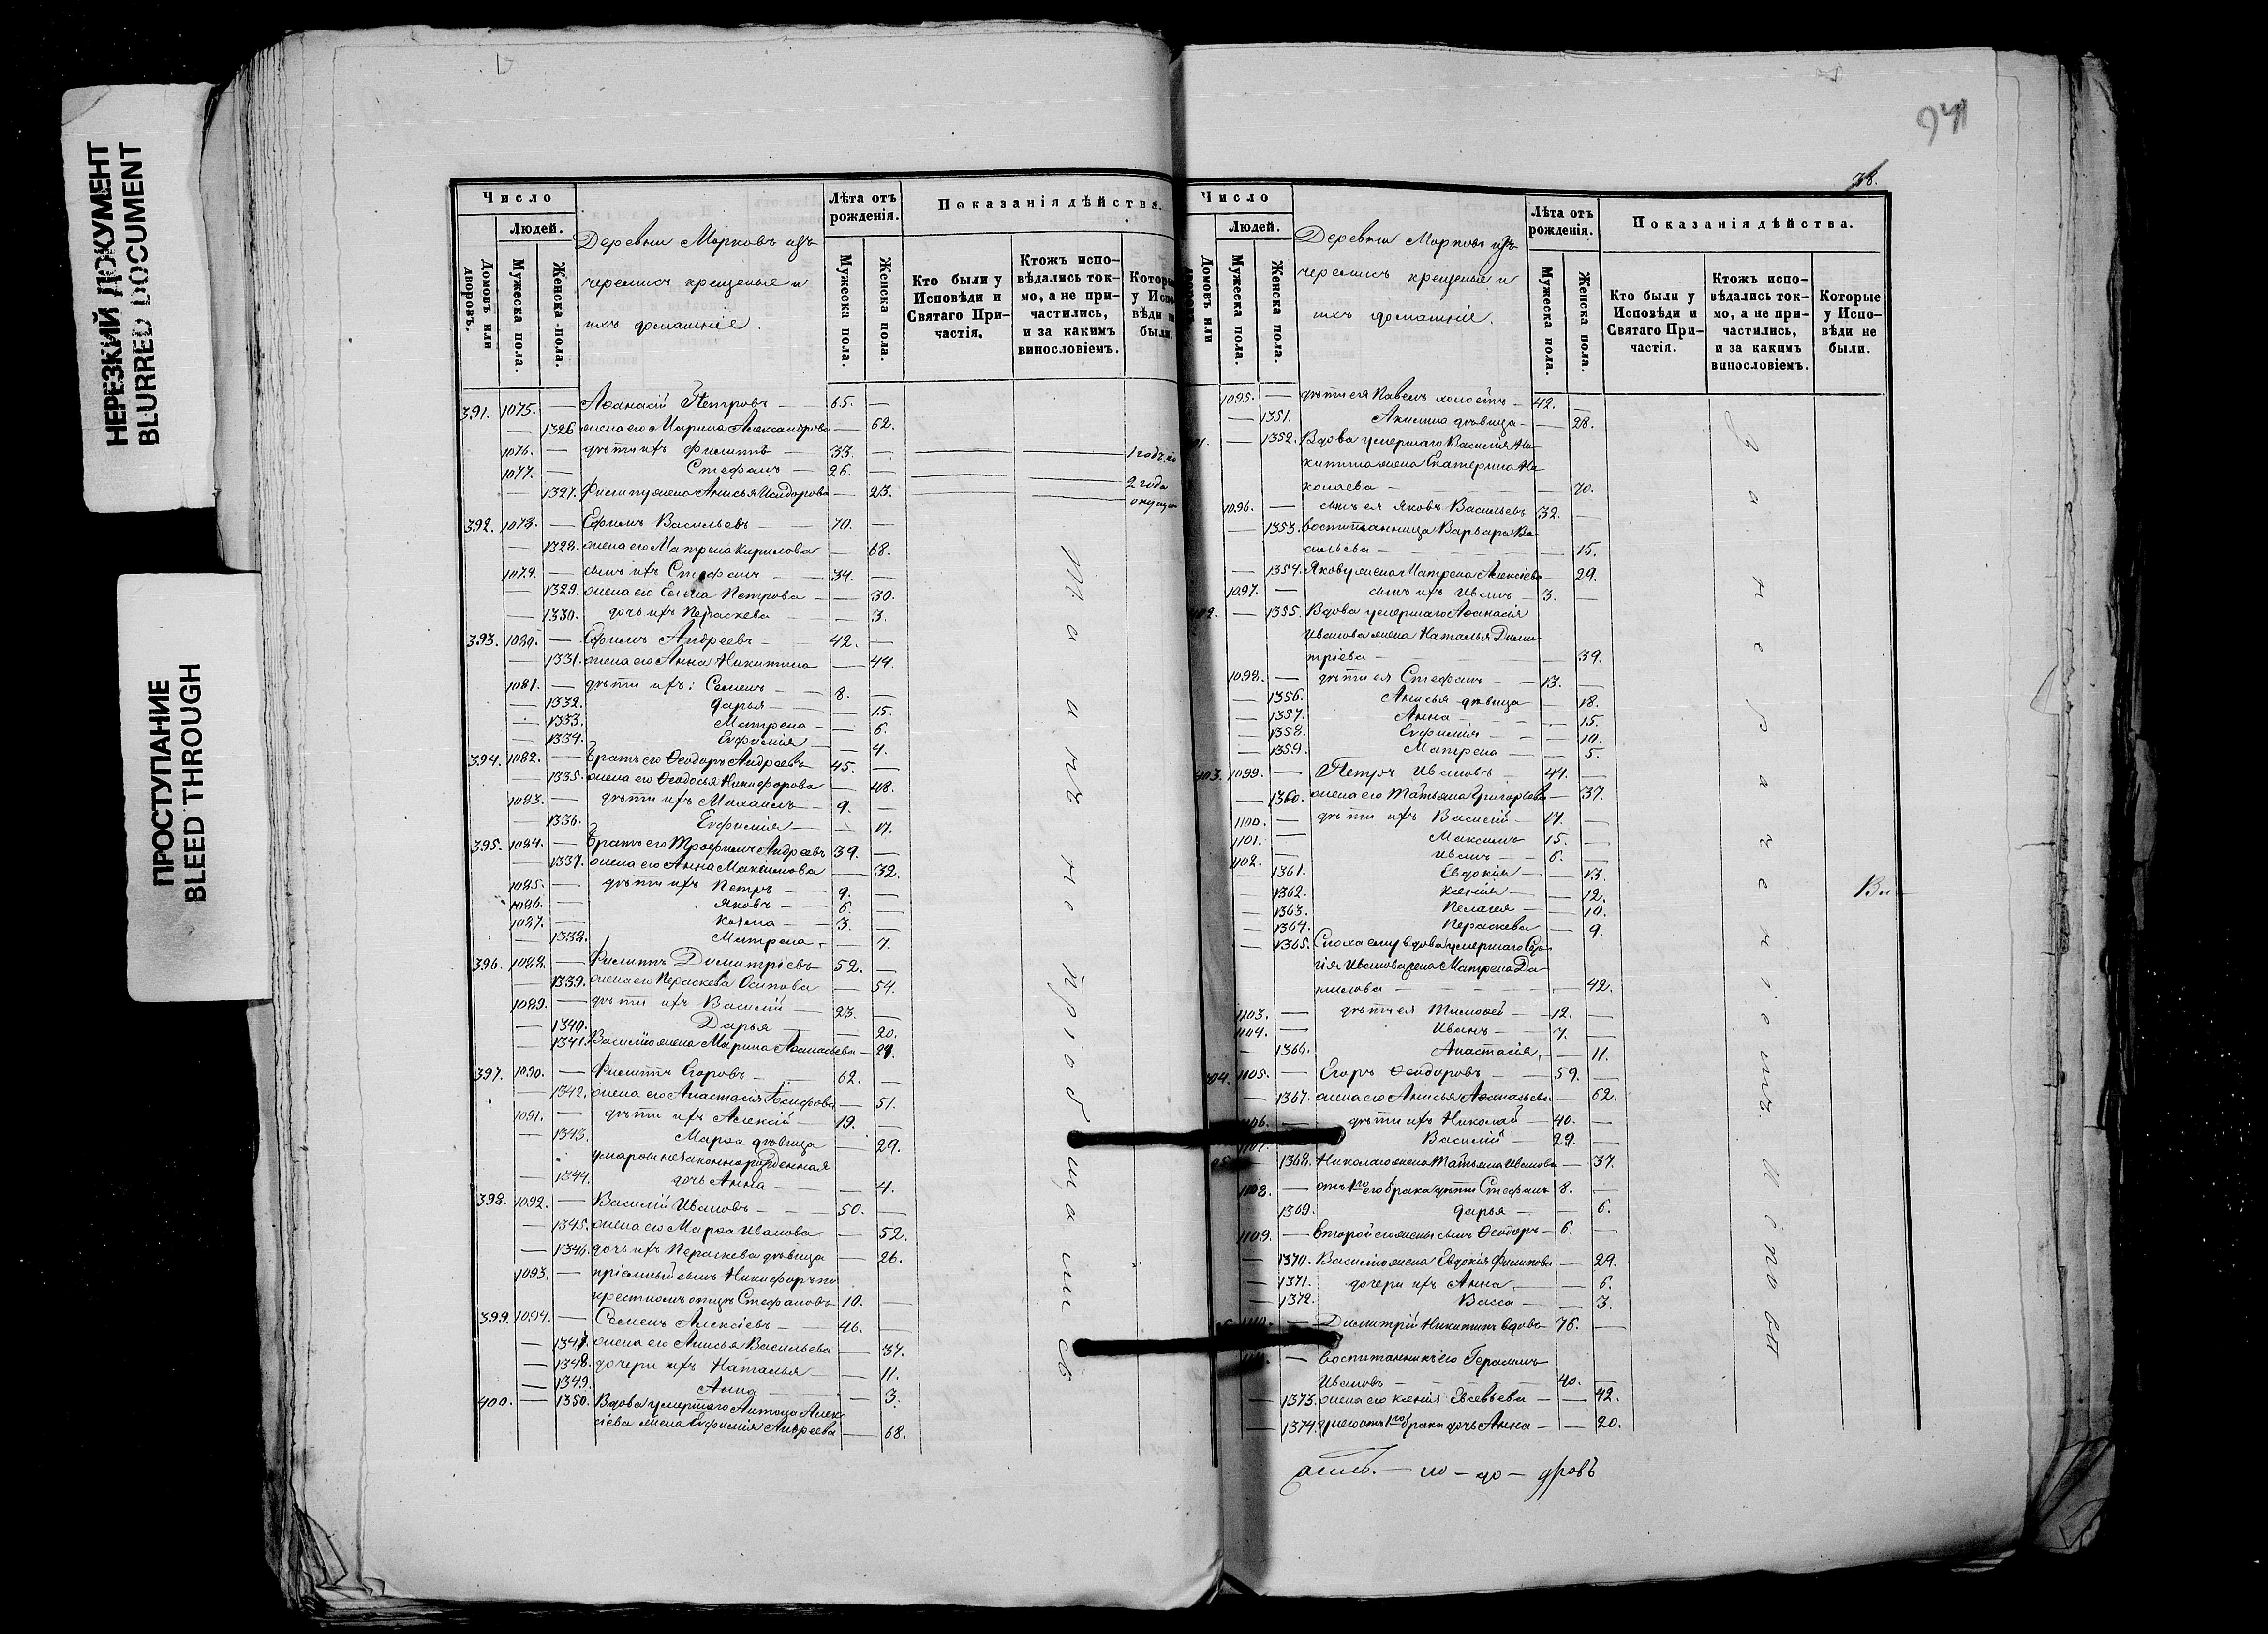 НЕРЕЗКИЙ ДОКУМЕНТ
BLURRED DOCUMENT
ПРОСТУПАНИЕ
BLEED THROUGH
Число
Людей.
Домовъ или дворовъ.
Мужеска пола.
Женска пола.
Деревни Марковъ изъ
черемисъ крещеные и
ихъ домашніе.
Лѣта отъ рожденія.
Мужеска пола.
Женска пола.
Показанія дѣйства.
Кто были у Исповѣди и Святаго Причастія.
Ктожъ исповѣдались токмо, а не причастились, и за какимъ винословіемъ.
391. 1075. — Аѳанасій Петровъ — 65. —
— 1326 жена его Марина Александрова — 62.
1076. — дѣти ихъ Филиппъ — 33. —
1077. — Стефанъ — 26. — 2 года
— 1327. Филипу жена Анисья Исидорова — 23.
392. 1078. — Ефимъ Васильевъ — 70. —
— 1328. жена его Матрена Кирилова — 68.
1079. — сынъ ихъ Стефанъ — 34. —
— 1329. жена его Елена Петрова — 30.
— 1330. дочь ихъ Параскева — 3.
393. 1080. — Ефимъ Андреевъ — 42. —
— 1331. жена его Анна Никитина — 44.
1081. — дѣти ихъ: Семенъ — 8. —
— 1332. Дарья — 15.
— 1333. Матрена — 6.
— 1334. Евфимія — 4.
394. 1082. — Братъ его Ѳеодоръ Андреевъ 45. —
— 1335. жена его Ѳеодосья Никифорова — 48.
1083. — дѣти ихъ Михаилъ — 9. —
— 1336. Евфимія — 17.
395. 1084. — Братъ его Трофимъ Андреевъ 39. —
— 1337. жена его Анна Максимова — 32.
1085. — дѣти ихъ Петръ — 9. —
1086. — Яковъ — 6. —
1087. — Козма — 3. —
— 1338. Матрена — 7.
396. 1088. — Филиппъ Димитріевъ 52. —
— 1339. жена его Параскева Осипова — 54.
1089. — дѣти ихъ Василій — 23. —
— 1340. Дарья — 20.
— 1341. Василію жена Марина Аѳанасьева — 24.
397. 1090. — Филиппъ Егоровъ — 62. —
— 1342. жена его Анастасія — 51.
1091. — дѣти ихъ Алексій — 19. —
— 1343. Марѳа дѣвица — 29.
у Марѳы незаконнорожденная
— 1344. дочь Анна — 4.
398. 1092. — Василій Ивановъ — 50. —
— 1345. жена его Марѳа Иванова — 52.
— 1346. дочь ихъ Параскева дѣвица — 26.
1093. — пріемный сынъ Никифоръ по
крестномъ отцѣ Стефановъ 10. —
399. 1094. — Семенъ Алексіевъ — 46. —
— 1347. жена его Анисья Васильева — 37.
— 1348. дочери ихъ Наталья — 11.
— 1349. Анна — 3.
400. — 1350. Вдова умершаго Антона Алек-
сіева жена Евфимія Андреева — 68.
Таинъ не пріобщались
94
78.
Число
Людей.
Домовъ или
Мужеска пола.
Женска пола.
Деревни Марковъ изъ
черемисъ крещеные и
ихъ домашніе.
Лѣта отъ рожденія.
Мужеска пола.
Женска пола.
Показанія дѣйства.
Кто были у Исповѣди и Святаго Причастія.
Ктожъ исповѣдались токмо, а не причастились, и за какимъ винословіемъ.
Которые у Исповѣди не были.
1095. — дѣти ея Павелъ холостъ — 42. —
— 1351. Акилина дѣвица — 28.
— 1352. Вдова умершаго Василія Ни-
китина жена Екатерина Ни-
колаева — 70.
1096. — сынъ ея Яковъ Васильевъ 32. —
— 1353. воспитанница Варвара Ва-
сильева — 15.
— 1354. Якову жена Матрена Алексіева — 29.
1097. — сынъ ихъ Иванъ — 3. —
402. — 1355. Вдова умершаго Аѳанасія
Иванова жена Наталья Дими-
тріева — 39.
1098. — дѣти ея Стефанъ — 13. —
— 1356. Анисья дѣвица — 18.
— 1357. Анна — 15.
— 1358. Евфимія — 10.
— 1359. Матрена — 5.
403. 1099. — Петръ Ивановъ — 44. —
— 1360. жена его Татьяна Григорьева — 37.
1100. — дѣти ихъ Василій — 17. —
1101. — Максимъ 15. —
1102. — Иванъ — 6. —
— 1361. Евдокія — 13.
— 1362. Ксенія — 12.
— 1363. Пелагея — 10.
— 1364. Параскева — 9.
— 1365. Сноха ему вдова умершаго Сер-
гія Иванова жена Матрена Да-
нилова — 42.
1103. — дѣти ея Тимоѳей — 12. —
1104. — Иванъ — 7. —
— 1366. Анастасія — 11.
404. 1105. — Егоръ Ѳеодоровъ — 59. —
— 1367. жена его Анисья Аѳанасьева — 62.
1106. — дѣти ихъ Николай — 40. —
1107. Василій — 29. —
1368. Николаю жена Татьяна Иванова — 37.
1108. — отъ 1го его брака дѣти Стефанъ 8. —
1369. Дарья — 6.
1109. — Второй его жены сынъ Ѳеодоръ — 6. —
— 1370. Василію жена Евдокія Филипова — 29.
— 1371. дочери ихъ Анна — 6.
— 1372. Васса — 3.
— Димитрій Никитинъ вдовъ 76. —
— воспитанникъ его Герасимъ
Ивановъ — 40. —
— 1373. жена его Ксенія Евсевьева — 42.
— 1374. у нея отъ 1го брака дочь Анна — 20.
За нераченіемъ